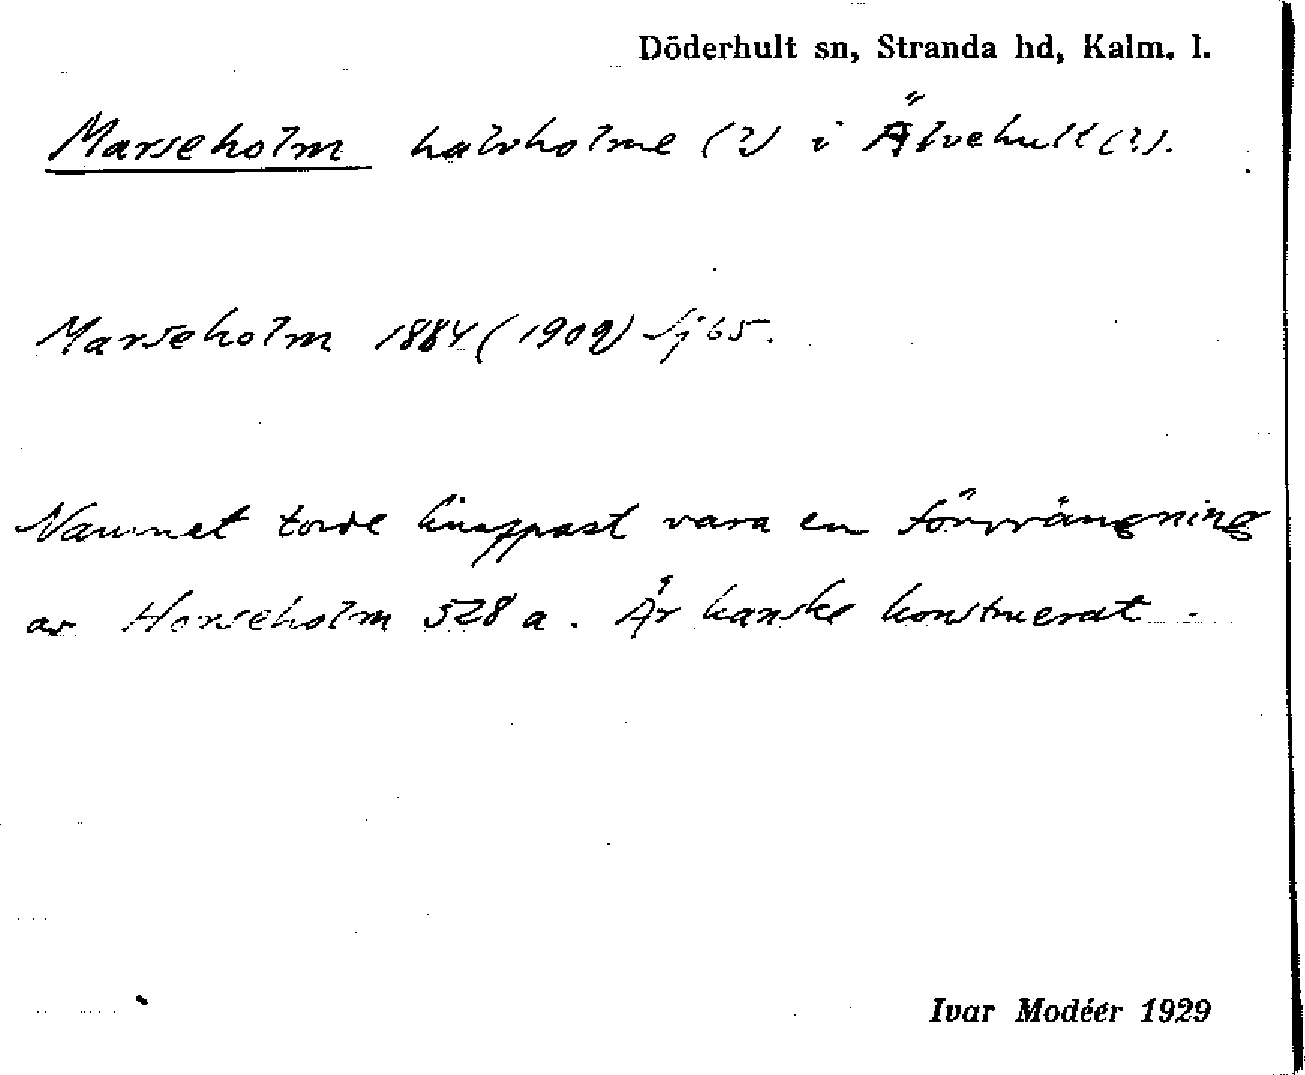 Döderhult sn, Stranda hd, Kalm. l.
Marseholm halvholme (?) i Älvehult (?).
Marseholm 1884 (1909) Sj 65.
Namnet torde knappast vara en förvrängning
av Horseholm 528 a. Är kanske konstruerat.
Ivar Modéer 1929